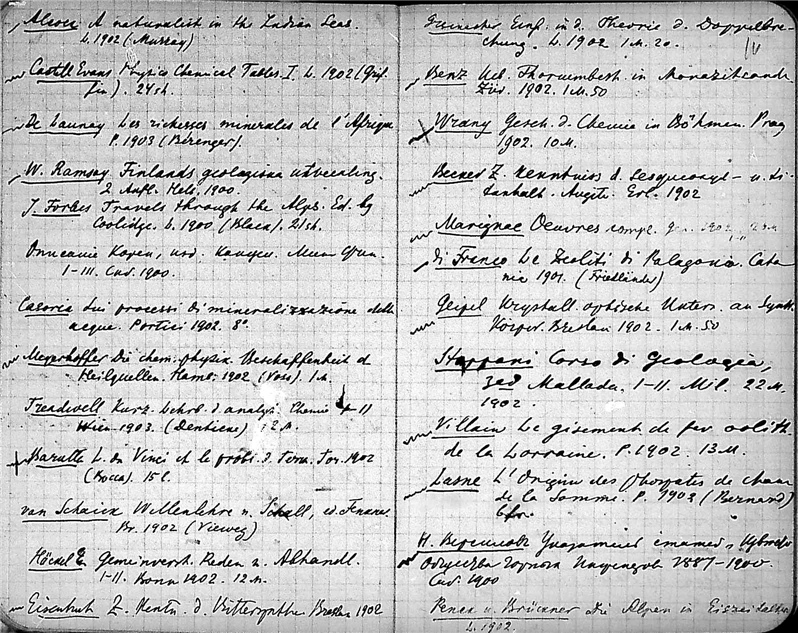 Alcock A naturalist in the Indian Seas.
L. 1902 (Murray)
Castell Evans Physico Chemical Tables. I. L. 1902 (Grif-
fin). 24sh.
De Launay Les richesses minerales de l'Afrique
P. 1903 (Bérenger).
W. Ramsay Finlands geologiska utveckling.
2 Aufl. Hels. 1900.
J. Forbes Travels through the Alps. Ed. by
Coolidge. L. 1900 (Black). 21sh.
I–III. Спб. 1900.
Casoria Sui processi di mineralizzazione delle
acque. Portici 1902. 8°.
Meyerhoffer Die chem. physik. Beschaffenheit d
Heilquellen. Hamb. 1902 (Voss). 1M.
Treadwell Kurz. Lehrb. d. analyt. Chemie I–II
Wien 1903. (Deuticke) 12 M.
Baratta L. da Vinci et le probl. d. terra. Tor. 1902
(Bocca). 15 l.
van Schaick Wellenlehre u. Schall, ed.
Br. 1902 (Vieweg)
Höckel E. Gemeinverst. Reden u. Abhandl.
I–II. Bonn 1902. 12 M.
Eisenhut Z. d. Breslau 1902
Einf. in d. Theorie d. Doppelbre-
chung. L. 1902 1M. 20.
Benz Ueb. Thorium in Monazitsande
Zür. 1902. 1 M. 50
Wrany Gesch. d. Chemie in Böhmen. Prag
1902. 10 M.
Becker Z. Kenntniss d. Sesquioxyd- u. ti-
tanhalt. Augite. Erl. 1902
Marignac Oeuvres compl. 1902
di Franco Le Zeoliti di Palagonia. Cata-
nia 1901. (Friedländer)
Geipel Krystall. optische Unters. an Synth.
Körper. Breslau 1902. 1 M. 50
Stoppani Corso di Geologia,
3 ed Mallada. I–II. Mil. 22 M.
1902.
Villain Le gisement de fer oolith.
de la Lorraine. P. 1902. 13 M.
Lasne L'Origine des phosphates de chaux
de la Somme. P. 1903 (Bernard)
6 fr.
Н. Версилов Указатель статей,
Общества Горных Инженеров 1887–1900
Спб. 1900
Penck u. Brückner Die Alpen in Eiszeitalter
L. 1902.